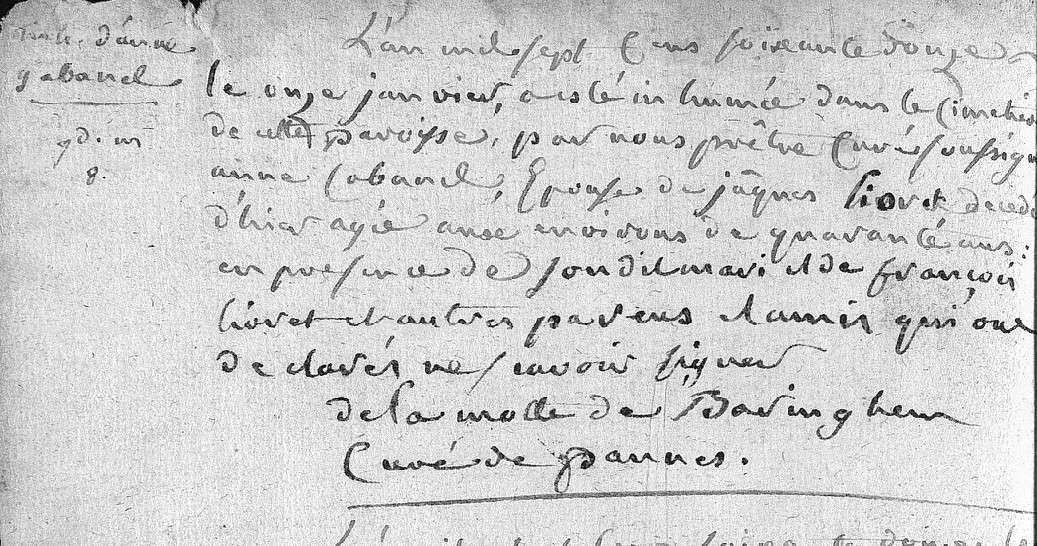 d'anne
gabanel
8.
L'an mil sept Cens soixante douze
le onze janvier, a esté inhumée dans le Cimetier
de cette paroisse, par nous prêtre Curé soussign
anne Cabanel, Epouse de jâques lioret decedé
d'hier agée anée environs de quarante ans:
en presence de son dit mari et de françois
lioret et autres parens et amis qui ont
declarés ne scavoir signer
de la motte de Baringhem
Curé de pannes.